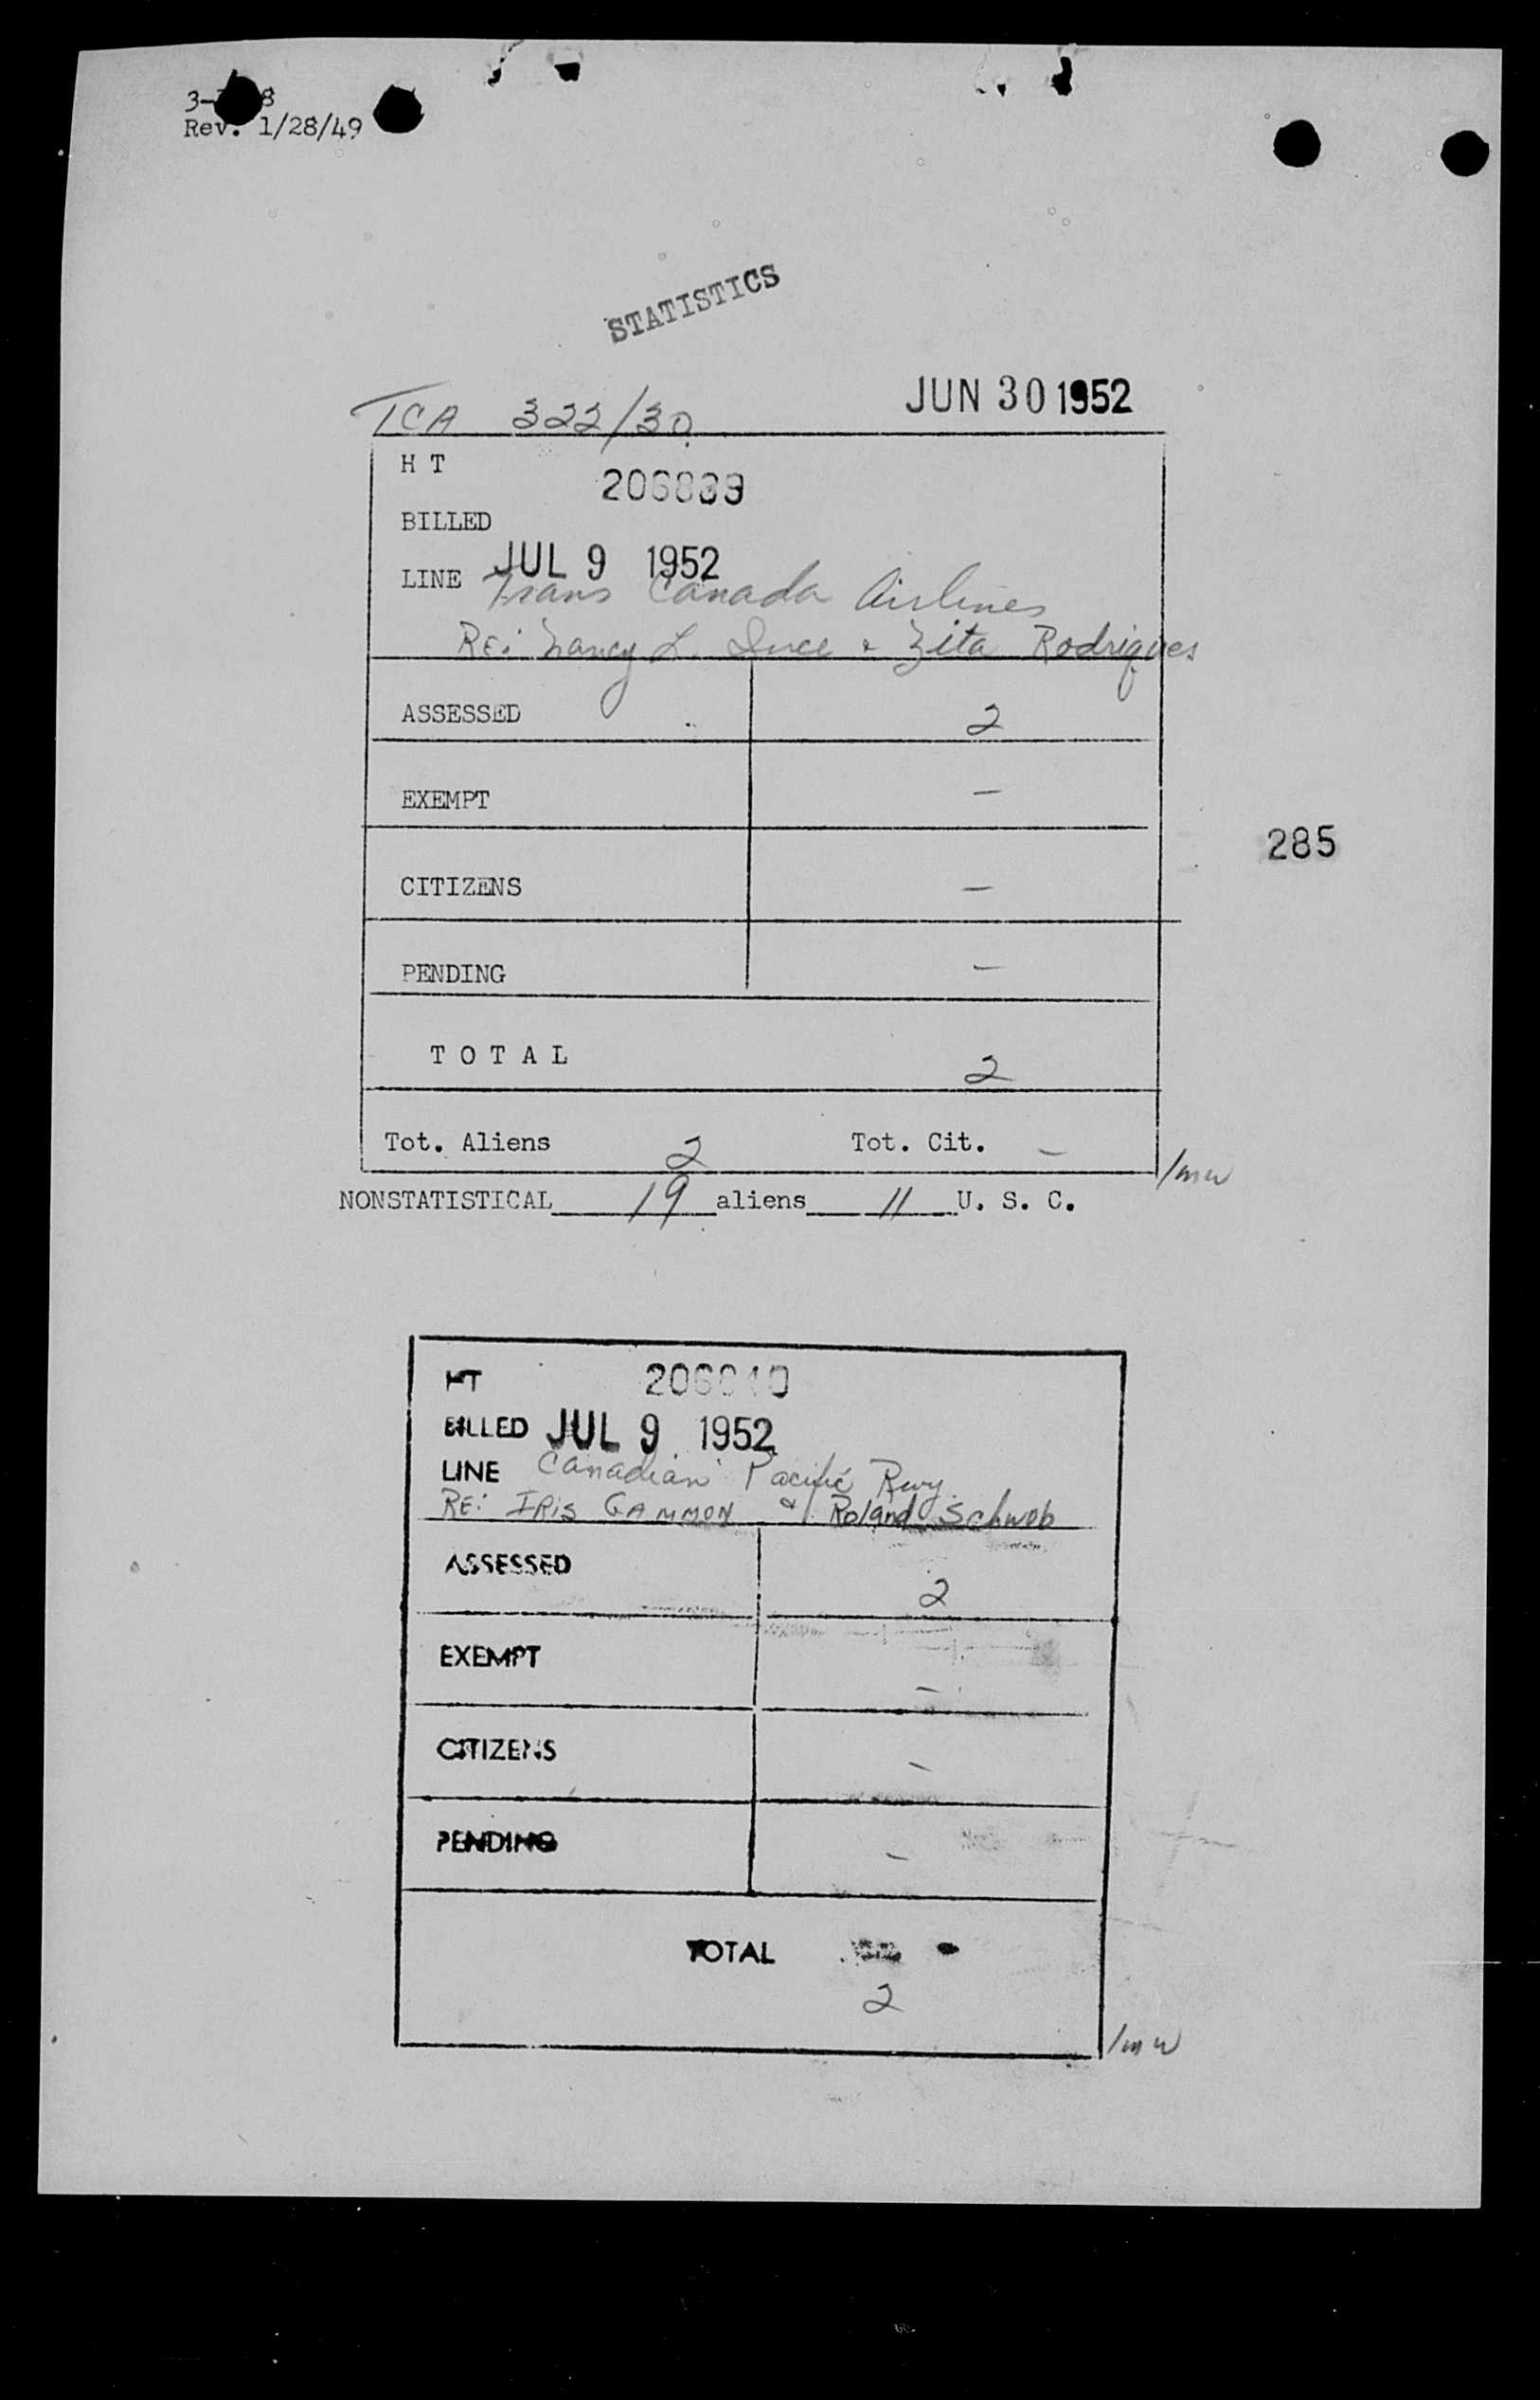 Rev. 1/28/49
STATISTICS
TCA 322/30
JUN 30 1952
H T
BILLED
JUL 9 1952
LINE Trans Canada Airlines
RE: Nancy L. & Zita Rodrigues
ASSESSED 2
EXEMPT —
285
CITIZENS —
PENDING —
T O T A L 2
Tot. Aliens 2 Tot. Cit. —
/mw
NONSTATISTICAL 19 aliens 11 U. S. C.
HT
BILLED JUL 9 1952
LINE Canadian Pacific Rwy.
RE: IRIS GAMMON & Roland Schwob
ASSESSED 2
EXEMPT —
CITIZENS —
PENDING —
TOTAL
2
/mw